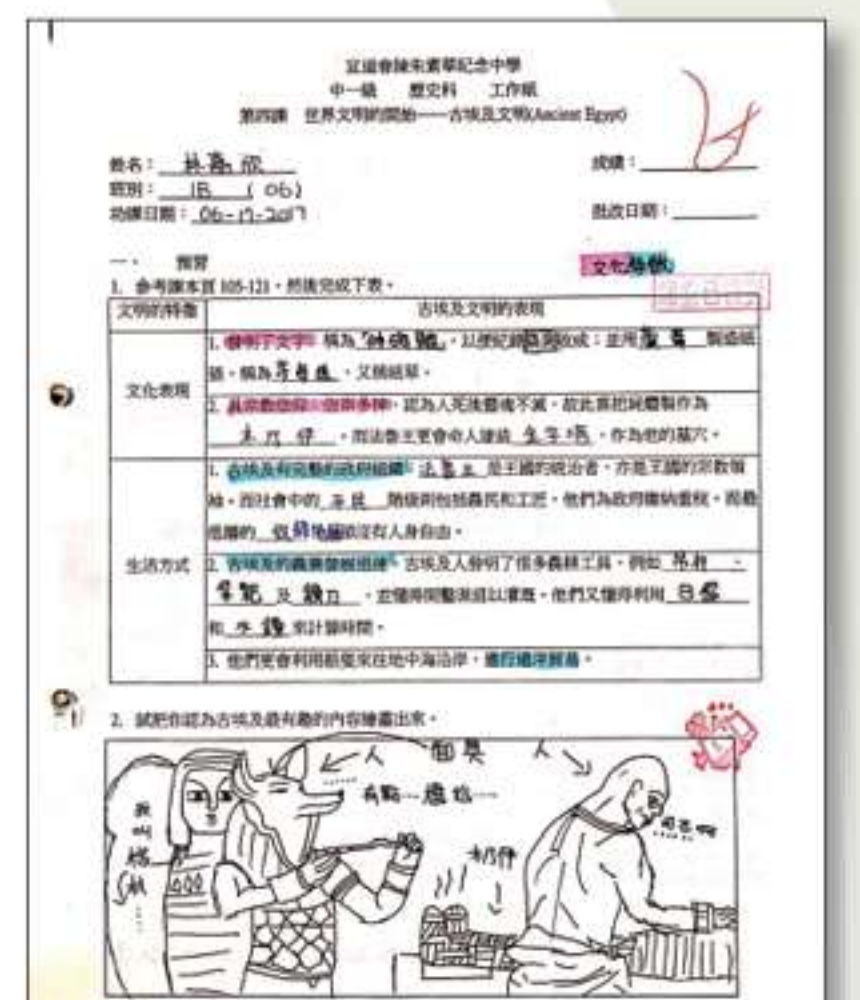 宣道會陳朱素華紀念中學
中一級 歷史科 工作紙
第四課 世界文明的開始——古埃及文明(Ancient Egypt)
姓名：
成績：
班別： 1B ( 06 )
功課日期：
批改日期：
一、 預習
文化
1. 參考課本頁 105-121，然後完成下表。
文明的特徵 古埃及文明的表現
文化表現
1. 發明了文字：稱為「 」，以便紀錄 ；並用 製造紙
張，稱為 ，又稱紙草。
2. 具宗教信仰：信奉多神，認為人死後靈魂不滅，故此喜把屍體製作為
木乃伊 ，而法老王更會命人建造 金字塔 ，作為他的墓穴。
生活方式
1. 古埃及有完整的政府組織：法老王 是王國的統治者，亦是王國的宗教領
袖。而社會中的 平民 階級則包括農民和工匠，他們為政府繳納重稅。而最
低層的 沒有人身自由。
2. 古埃及的農業發展迅速：古埃及人發明了很多農耕工具，例如 吊杆 、
及 鐮刀 ，並懂得開鑿渠道以灌溉。他們又懂得利用 日晷
和 水鐘 來計算時間。
3. 他們更會利用船隻來往地中海沿岸，進行遠洋貿易。
2. 試把你認為古埃及最有趣的內容繪畫出來。
人 面具 人
有點⋯尷尬⋯
木乃伊
我叫